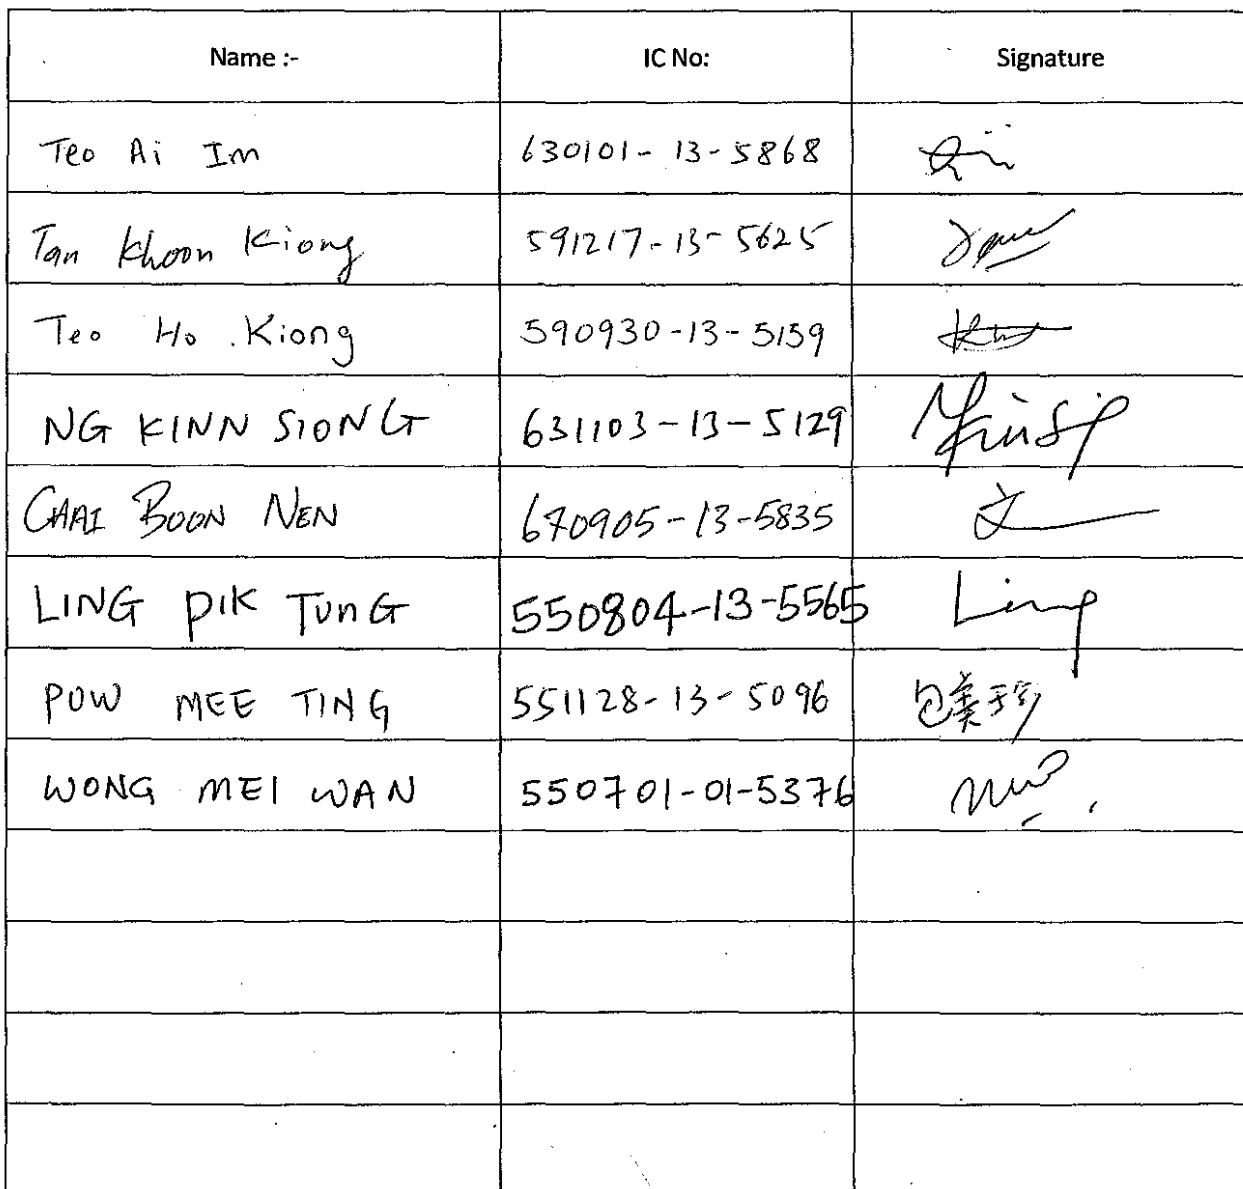 Name :- IC No: Signature
Teo Ai Im 630101-13-5868
Tan Khoon Kiong 591217-13-5625
Teo Ho Kiong 590930-13-5159
NG KINN SIONG 631103-13-5129
CHAI BOON NEN 670905-13-5835
LING PIK TUNG 550804-13-5565 Ling
POW MEE TING 551128-13-5096
WONG MEI WAN 550701-01-5376